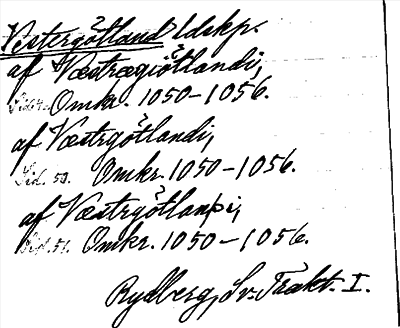 Vestergötland ldskp.
af Væstrægiötlandi,
Sid. 42. Omkr. 1050–1056.
af Væstrgötlandi,
Sid. 50. Omkr. 1050–1056.
af Væstrgötlanþi,
Sid. 51. Omkr. 1050–1056.
Rydberg, Sv. Trakt. I.